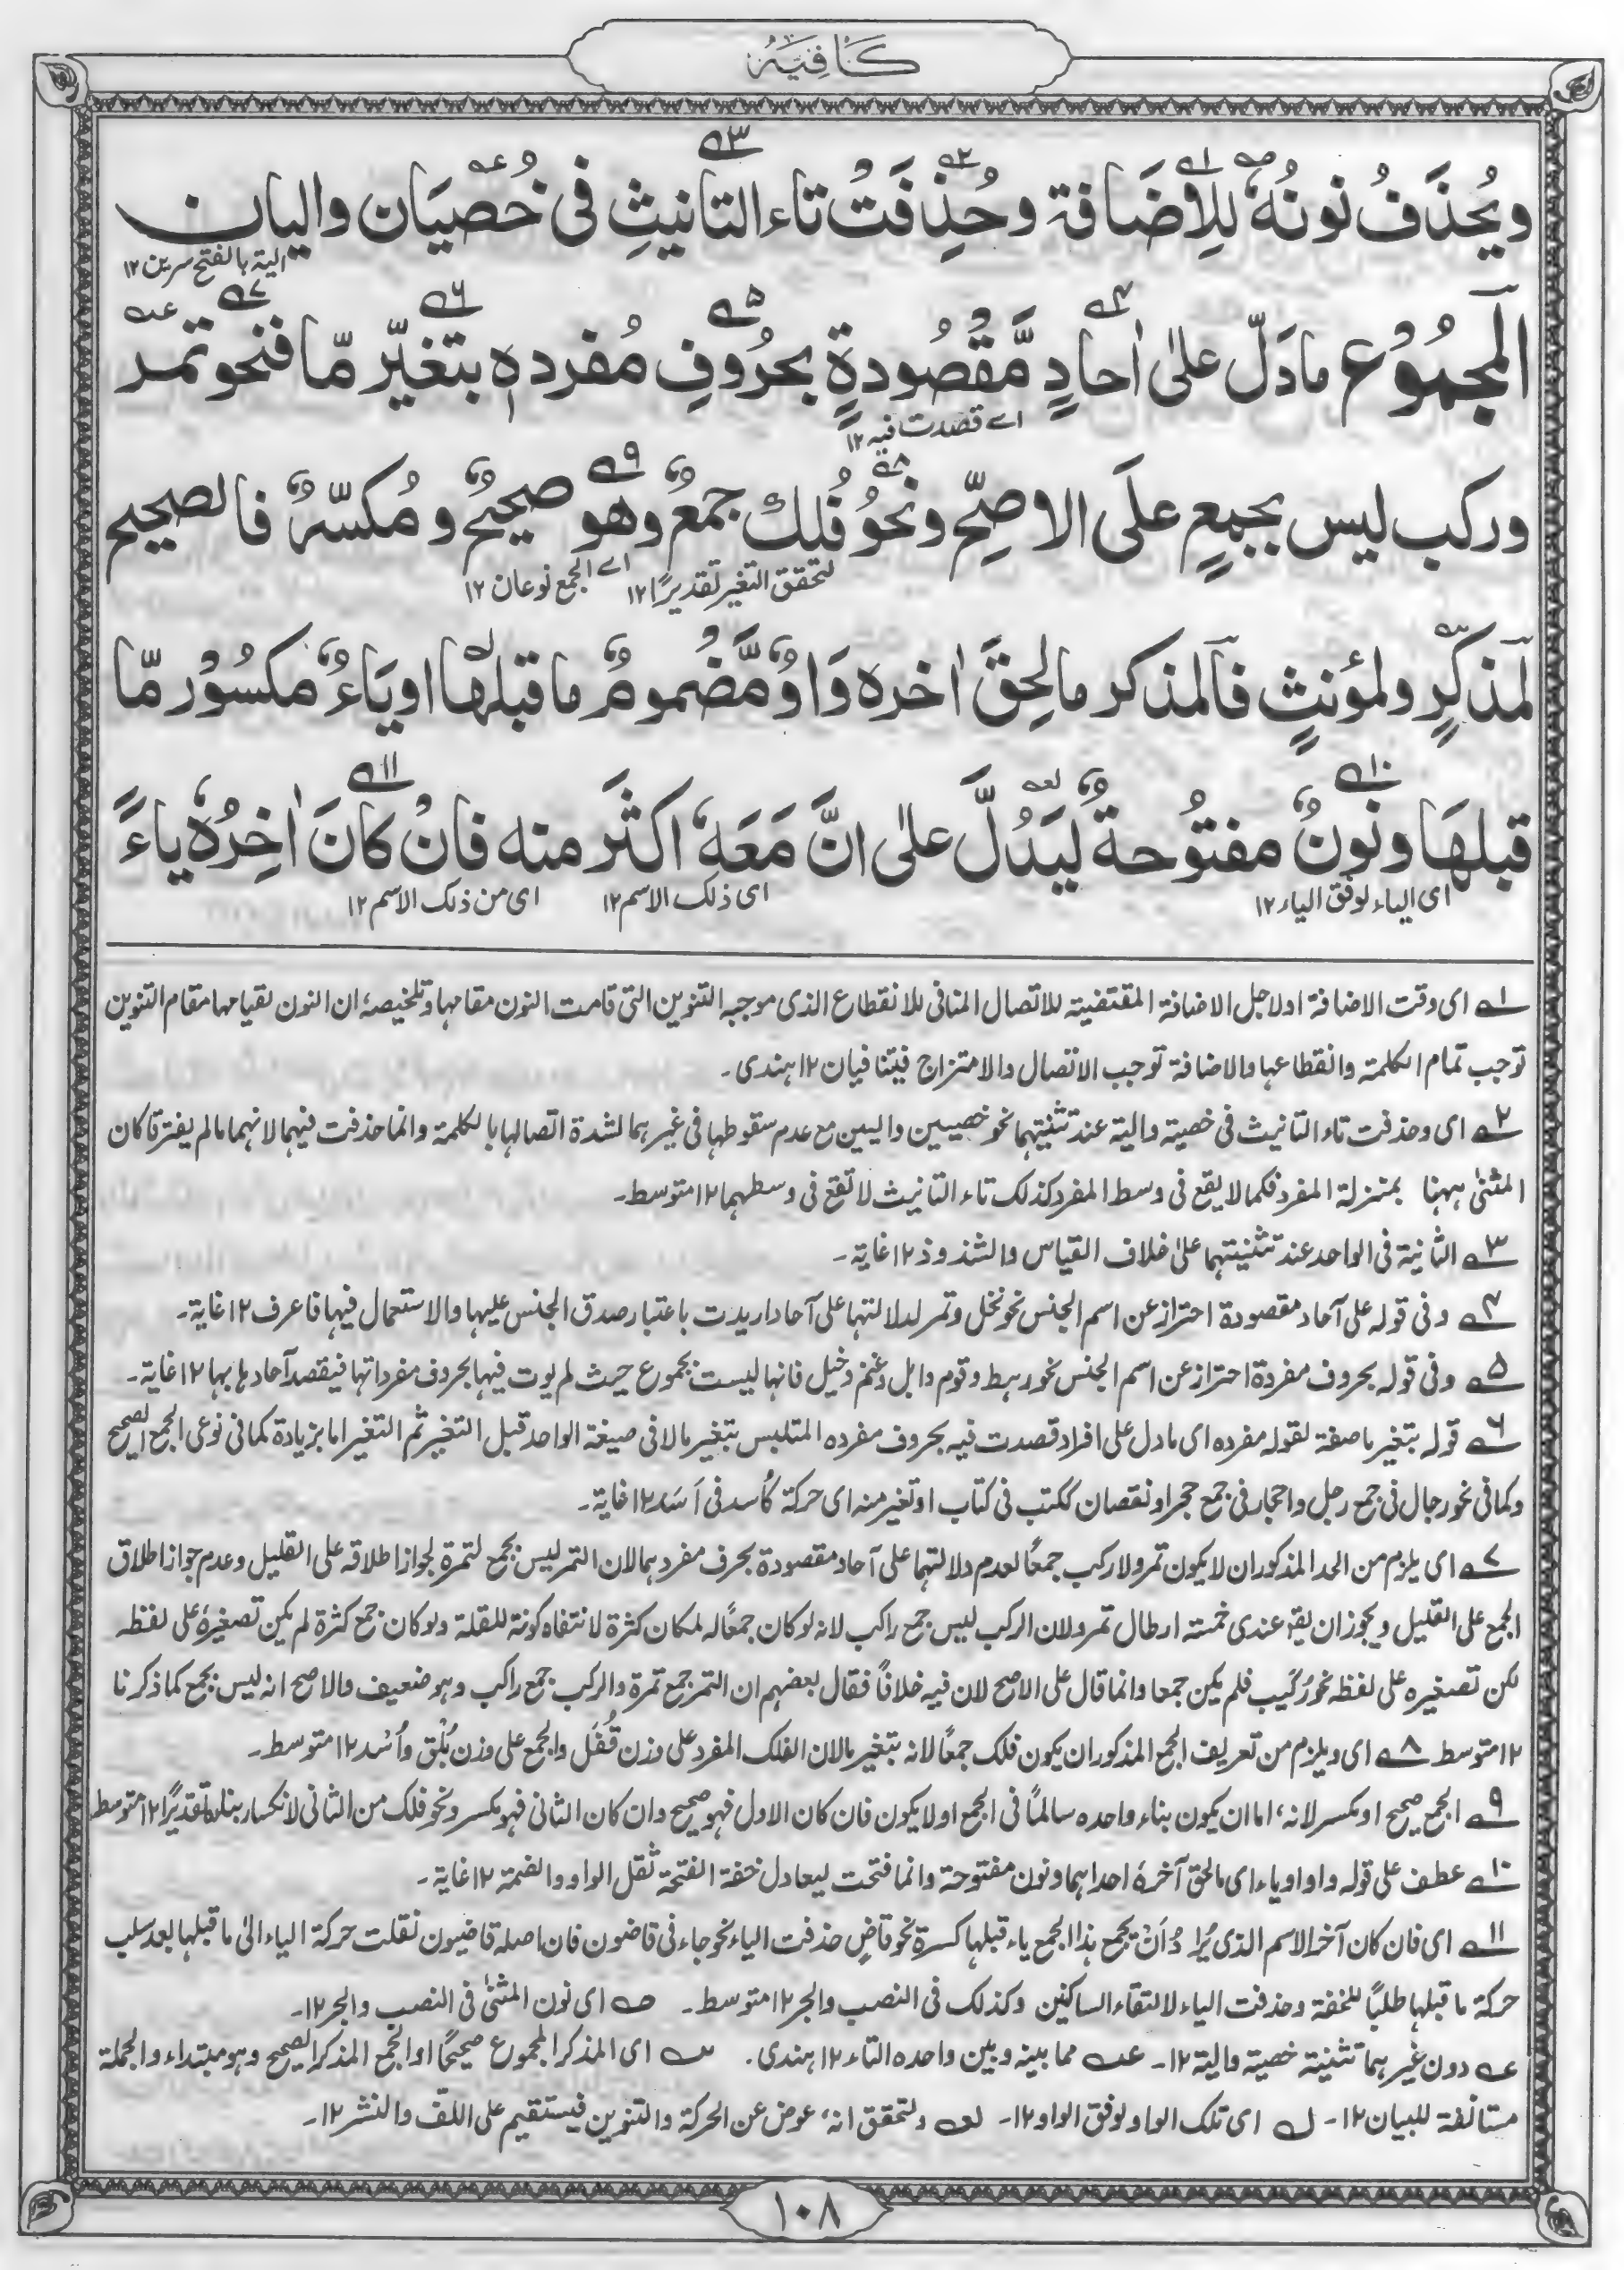 كَافِيَه
ويُحذَفُ نونُهٗ لِلِاضَافة وحُذِفَتْ تاء التانيثِ فى خُصيَان واليان
الية بالفتح سرين ١٢
المجمُوُع مادَلّ علىٰ اٰحادٍ مَّقصُودةٍ بحرُوفِ مُفرده بتغيّر مّا فنحو تمر
اے قصدت فيه ١٢
وركب ليس بجمعٍ علَى الاصِحّ ونحوُ فُلك جمعٌ وهو صحيحٌ ومُكسّرٌ فالصحيح
لتحقق التغير تقديرًا ١٢ اے الجمع نوعان ١٢
لمذكّرٍ ولمؤنثٍ فالمذكر مالحِقَ اٰخره وَاوٌ مَّضمومٌ ماقبلها اوياءٌ مكسُوْر مّا
قبلهَا ونونٌ مفتُوحةٌ لّيَدُلَّ علىٰ انَّ مَعَهٗ اكثَر منه فانْ كانَ اٰخِرُهٗ ياءً
اى الياء لوفق الياء ١٢ اى ذلك الاسم ١٢ اى من ذلك الاسم ١٢
١ـه اى وقت الاضافة اولاجل الاضافة المقتضية للاتصال المنافى للانقطاع الذى موجبه التنوين التى قامت النون مقامها وتلخيصه ان النون لقيامها مقام التنوين
توجب تمام الكلمة وانقطاعها والاضافة توجب الاتصال والامتزاج فيتنافيان ١٢ هندى۔
٢ـه اى وحذفت تاء التانيث فى خصية والية عند تثنيتهما نحو خصيين واليين مع عدم سقوطها فى غيرهما لشدة اتصالها بالكلمة وانما حذفت فيهما لانهما مالم يفترقا كان
المثنىٰ ههنا بمنزلة المفرد فكما لايقع فى وسط المفرد كذلك تاء التانيث لاتقع فى وسطهما ١٢ متوسط۔
٣ـه الثانية فى الواحد عند تثنيتهما علىٰ خلاف القياس والشذوذ ١٢ غاية۔
٤ـه وفى قوله على آحاد مقصودة احتراز عن اسم الجنس نحو نخل وتمر لدلالتها على آحاد اريدت باعتبار صدق الجنس عليها والاستعمال فيها فاعرف ١٢ غاية۔
٥ـه وفى قوله بحروف مفردة احتراز عن اسم الجنس نحو رهط وقوم وابل وغنم وخيل فانها ليست بجموع حيث لم يوت فيها بحروف مفرداتها فيقصد آحادها بها ١٢ غاية۔
٦ـه قوله بتغير ماصفة لقوله مفرده اى مادل على افراد قصدت فيه بحروف مفرده المتلبس بتغير مالافى صيغة الواحد قبل التغير ثم التغير اما بزيادة كما فى نوعى الجمع الصحيح
وكما فى نحو رجال فى جمع رجل واحجار فى جمع حجر او نقصان ككتب فى كتاب او تغير منه اى حركة كاُسد فى اَسَد ١٢ غاية۔
٧ـه اى يلزم من الحد المذكور ان لايكون تمر ولاركب جمعًا لعدم دلالتهما على آحاد مقصودة بحرف مفردهما لان التمر ليس بجمع لتمرة لجواز اطلاقه على القليل وعدم جواز اطلاق
الجمع على القليل ويجوز ان يقٓ عندى خمسة ارطال تمر ولان الركب ليس جمع راكب لانه لو كان جمعًا له لكان كثرة لانتفاء كونه للقلة ولو كان جمع كثرة لم يكن تصغيرهٗ على لفظه
لكن تصغيره على لفظه نحو رُكَيب فلم يكن جمعا وانما قال على الاصح لان فيه خلافًا فقال بعضهم ان التمر جمع تمرة والركب جمع راكب وهو ضعيف والاصح انه ليس بجمع كما ذكرنا
١٢ متوسط ٨ـه اى ويلزم من تعريف الجمع المذكور ان يكون فلك جمعًا لانه بتغير مالان الفلك المفرد على وزن قُفْل والجمع على وزن بُلْق واُسْد ١٢ متوسط۔
٩ـه الجمع صحيح او مكسر لانهٗ اما ان يكون بناء واحده سالمًا فى الجمع اولايكون فان كان الاول فهو صحيح وان كان الثانى فهو مكسر ونحو فلك من الثانى لانكسار بنائه تقديرًا ١٢ متوسط
١٠ـه عطف على قوله واو اوياء اى مالحق آخرهٗ احداهما ونون مفتوحة وانما فتحت ليعادل خفة الفتحة ثقل الواو والضمة ١٢ غاية۔
١١ـه اى فان كان آخر الاسم الذى يُرادُ اَنْ يجمع هذا الجمع ياء قبلها كسرة نحو قاضٍ حذفت الياء نحو جاءنى قاضون فان اصله قاضيون نقلت حركة الياء الىٰ ماقبلها بعد سلب
حركة ماقبلها طلبًا للخفة وحذفت الياء لالتقاء الساكنين وكذلك فى النصب والجر ١٢ متوسط۔ صـه اى نون المثنىٰ فى النصب والجر ١٢۔
عـه دون غيرهما تثنية خصية والية ١٢۔ عــه مما بينه وبين واحده التاء ١٢ هندى۔ سـه اى المذكر المجموع صحيحًا او الجمع المذكر الصحيح وهو مبتداء والجملة
مستانفة للبيان ١٢۔ لـه اى تلك الواو لوفق الواو ١٢۔ لعـه ولتحقق انهٗ عوض عن الحركة والتنوين فيستقيم على اللفّ والنشر ١٢۔
١٠٨